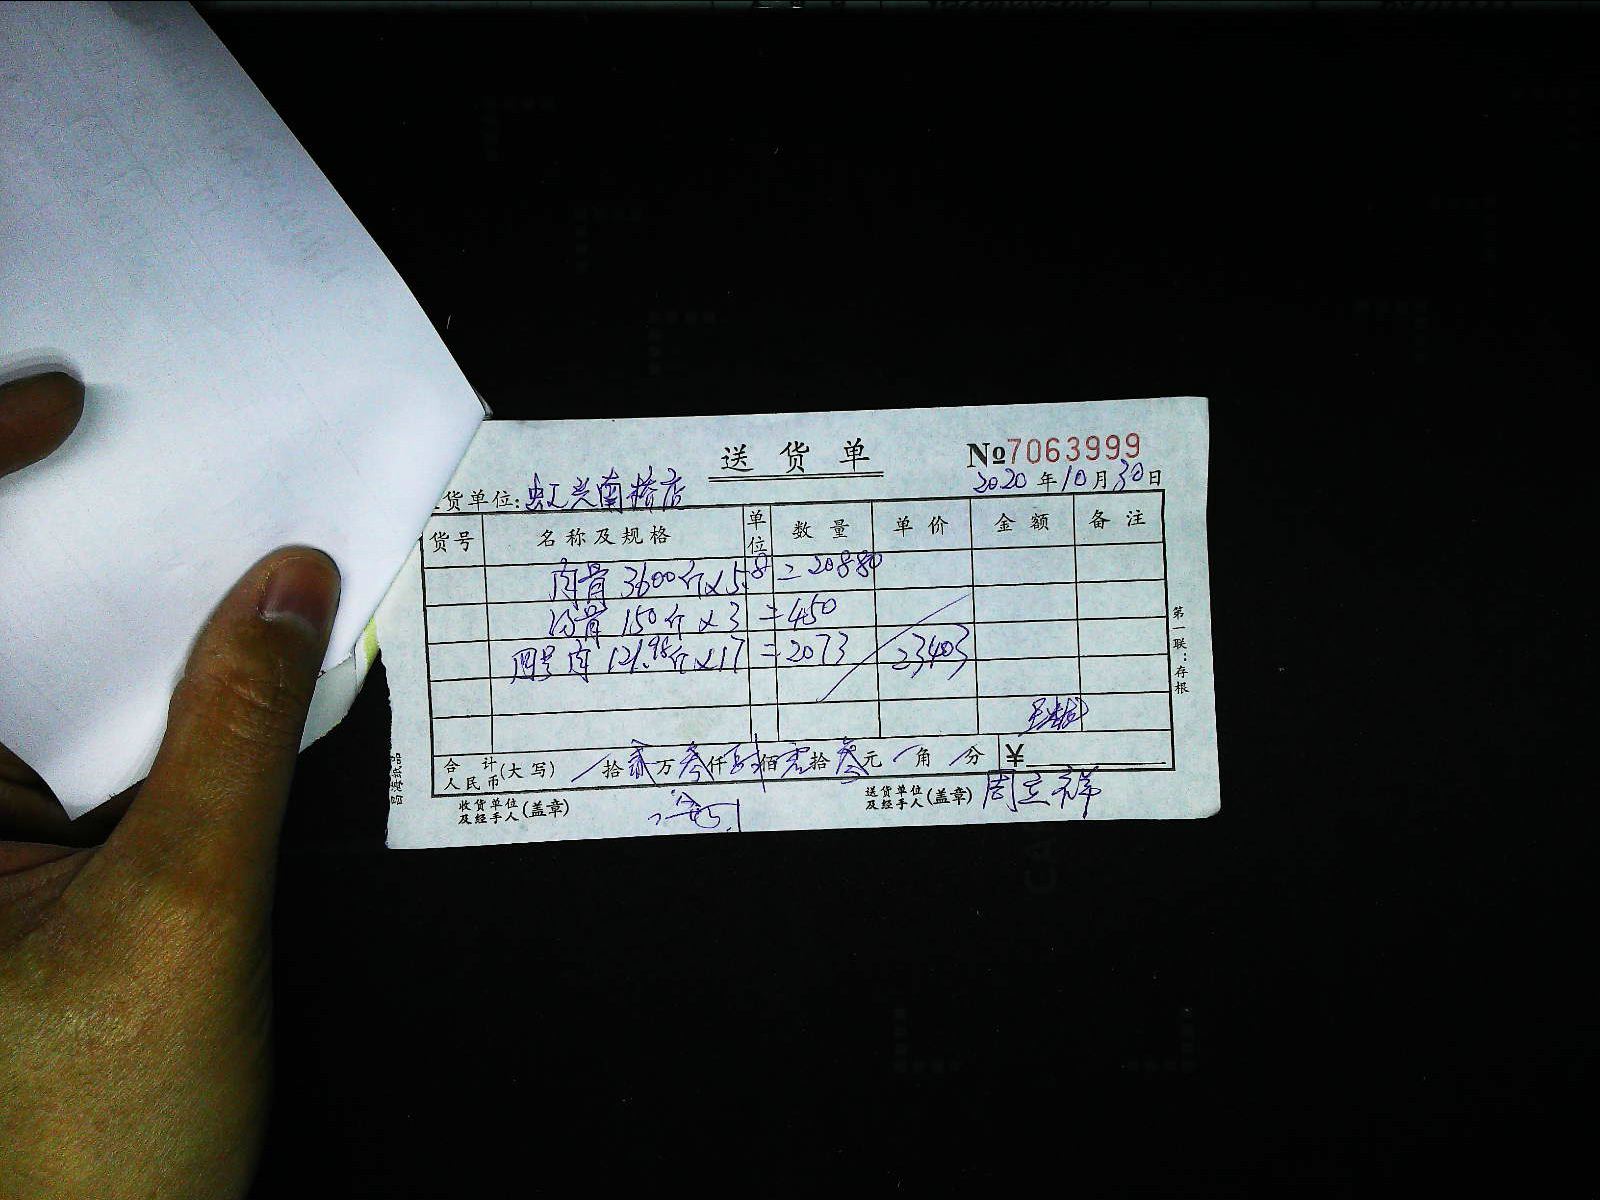 送货单
№7063999
2020年10月30日
货单位:虹兴南桥店
货号 名称及规格 单位 数量 单价 金额 备注
肉骨 3600斤×5.8=20880
骨 150斤×3=450
四号肉 121.98斤×17=2073 23403
第一联:存根
合计人民币(大写) 拾贰万叁仟肆佰零拾叁元 角 分 ¥
收货单位及经手人(盖章)
送货单位及经手人(盖章) 周立祥